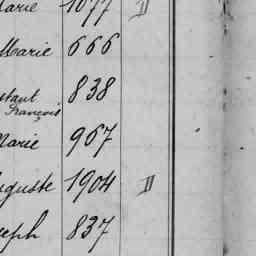 Marie 1077 D
Marie 666
stant 838
François
Marie 967
uguste 1904 D
seph 837